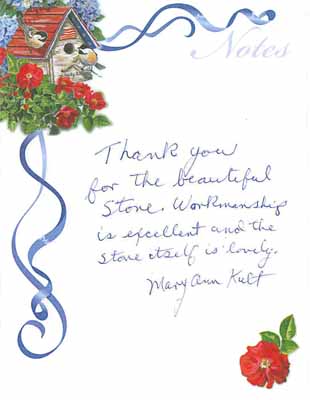 Notes
Thank you
for the beautiful
Stone. Workmanship
is excellent and the
stone itself is lovely.
Mary Ann Kult